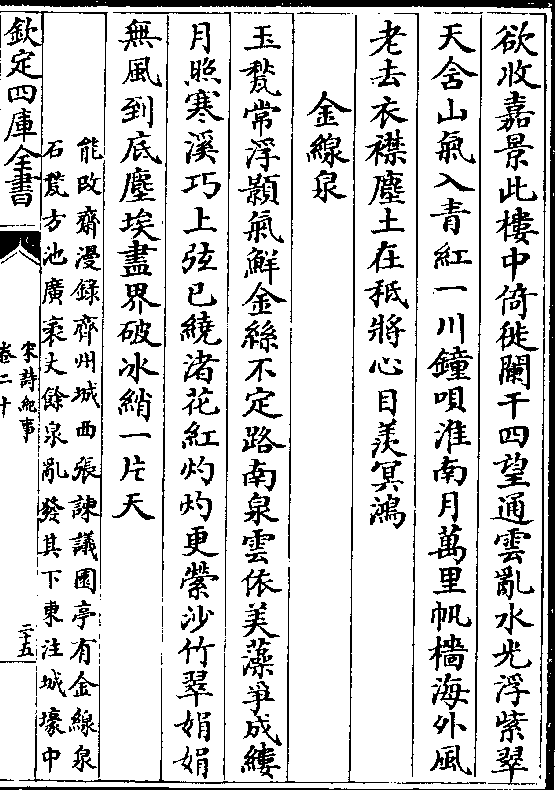 欲收嘉景此樓中倚徙闌干四望通雲亂水光浮紫翠
天含山氣入青紅一川鐘唄淮南月萬里帆檣海外風
老去衣襟塵土在秪將心目羨冥鴻
金線泉
玉甃常浮顥氣鮮金絲不定路南泉雲依美藻爭成縷
月照寒溪巧上弦已繞渚花紅灼灼更縈沙竹翠娟娟
無風到底塵埃盡界破冰綃一片天
能改齋漫錄齊州城西張諫議園亭有金線泉
石甃方池廣袤丈餘泉亂發其下東注城壕中
欽定四庫全書
宋詩紀事
卷二十
二十五